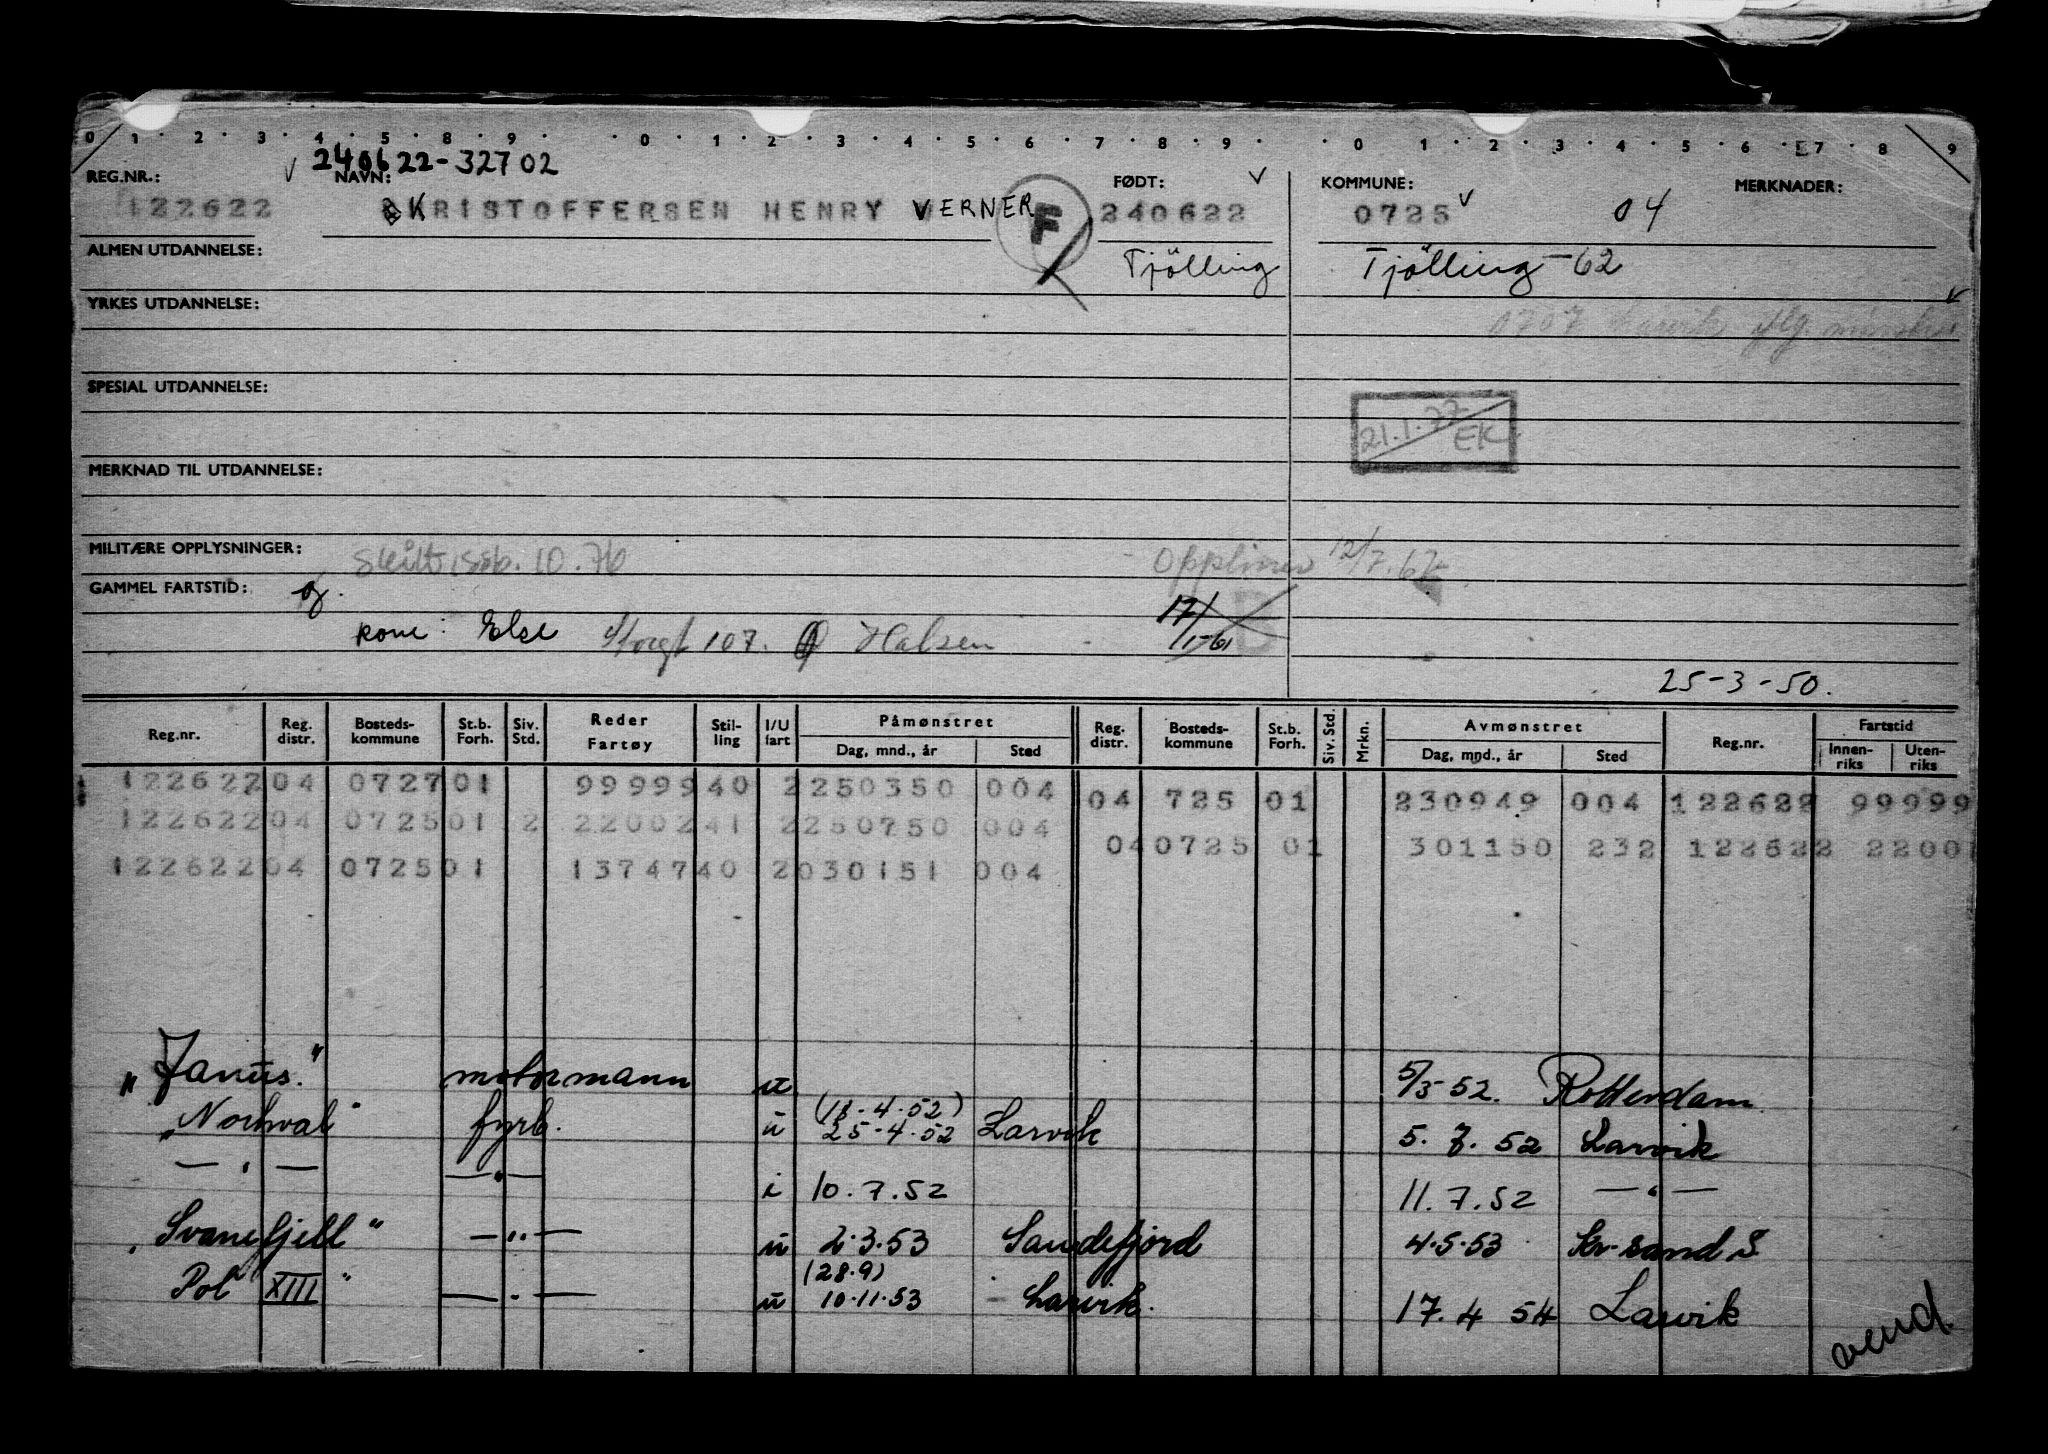 0 1 2 3 4 5 8 9 0 1 2 3 4 5 6 7 8 9 0 1 2 3 4 5 6 7 8 9
240622-32702
REG.NR.: NAVN: FØDT: KOMMUNE: MERKNADER:
122622 KRISTOFFERSEN HENRY VERNER F 240622 0725 04
ALMEN UTDANNELSE: Tjölling Tjölling -62
YRKES UTDANNELSE:
0707 Larvik
SPESIAL UTDANNELSE:
21.1.77 EK
MERKNAD TIL UTDANNELSE:
MILITÆRE OPPLYSNINGER: 10.76 12/7.67
GAMMEL FARTSTID:
kone: Else 107. Halsen 17/1-61
25-3-50.
Reg.nr. Reg. distr. Bosteds-kommune St.b. Forh. Siv. Std. Reder Fartøy Stil-ling I/U fart Påmønstret Dag, mnd., år Sted Reg. distr. Bosteds-kommune St.b. Forh. Siv. Std. Mrkn. Avmønstret Dag, mnd., år Sted Reg.nr. Fartstid Innen-riks Uten-riks
122622 04 0727 01 99999 40 2 250350 004 04 725 01 230949 004 122622 99999
122622 04 0725 01 2 22002 41 2 250750 004 04 0725 01 301150 232 122622 2200
122622 04 0725 01 13747 40 2 030151 004
"Janus." motormann u 5/3-52. Rotterdam.
"Norhval" fyrb. u (18.4.52) 25-4.52 Larvik 5.7.52 Larvik
— " — — " — i 10.7.52 11.7.52 — " —
"Svanefjell" — " — u 2.3.53 Sandefjord 4.5.53 Kr.sand S.
Pol XIII" — " — u (28.9) 10.11.53 Larvik. 17.4 54 Larvik
vend.